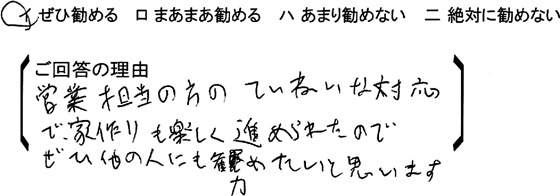 イ ぜひ勧める ロ まあまあ勧める ハ あまり勧めない ニ 絶対に勧めない
ご回答の理由
営業担当の方の ていねいな対応
で、家作りも楽しく進められたので
ぜひ他の人にも勧めたいと思います
力